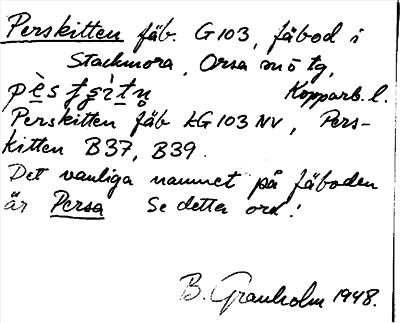 Perskitten fäb. G 103, fäbod i
Stackmora, Orsa sn ö tg,
Kopparb. l.
Perskitten fäb LG 103 NV, Pers-
kitten B37, B39.
Det vanliga namnet på fäboden
är Persa Se detta ord!
B. Granholm 1948.